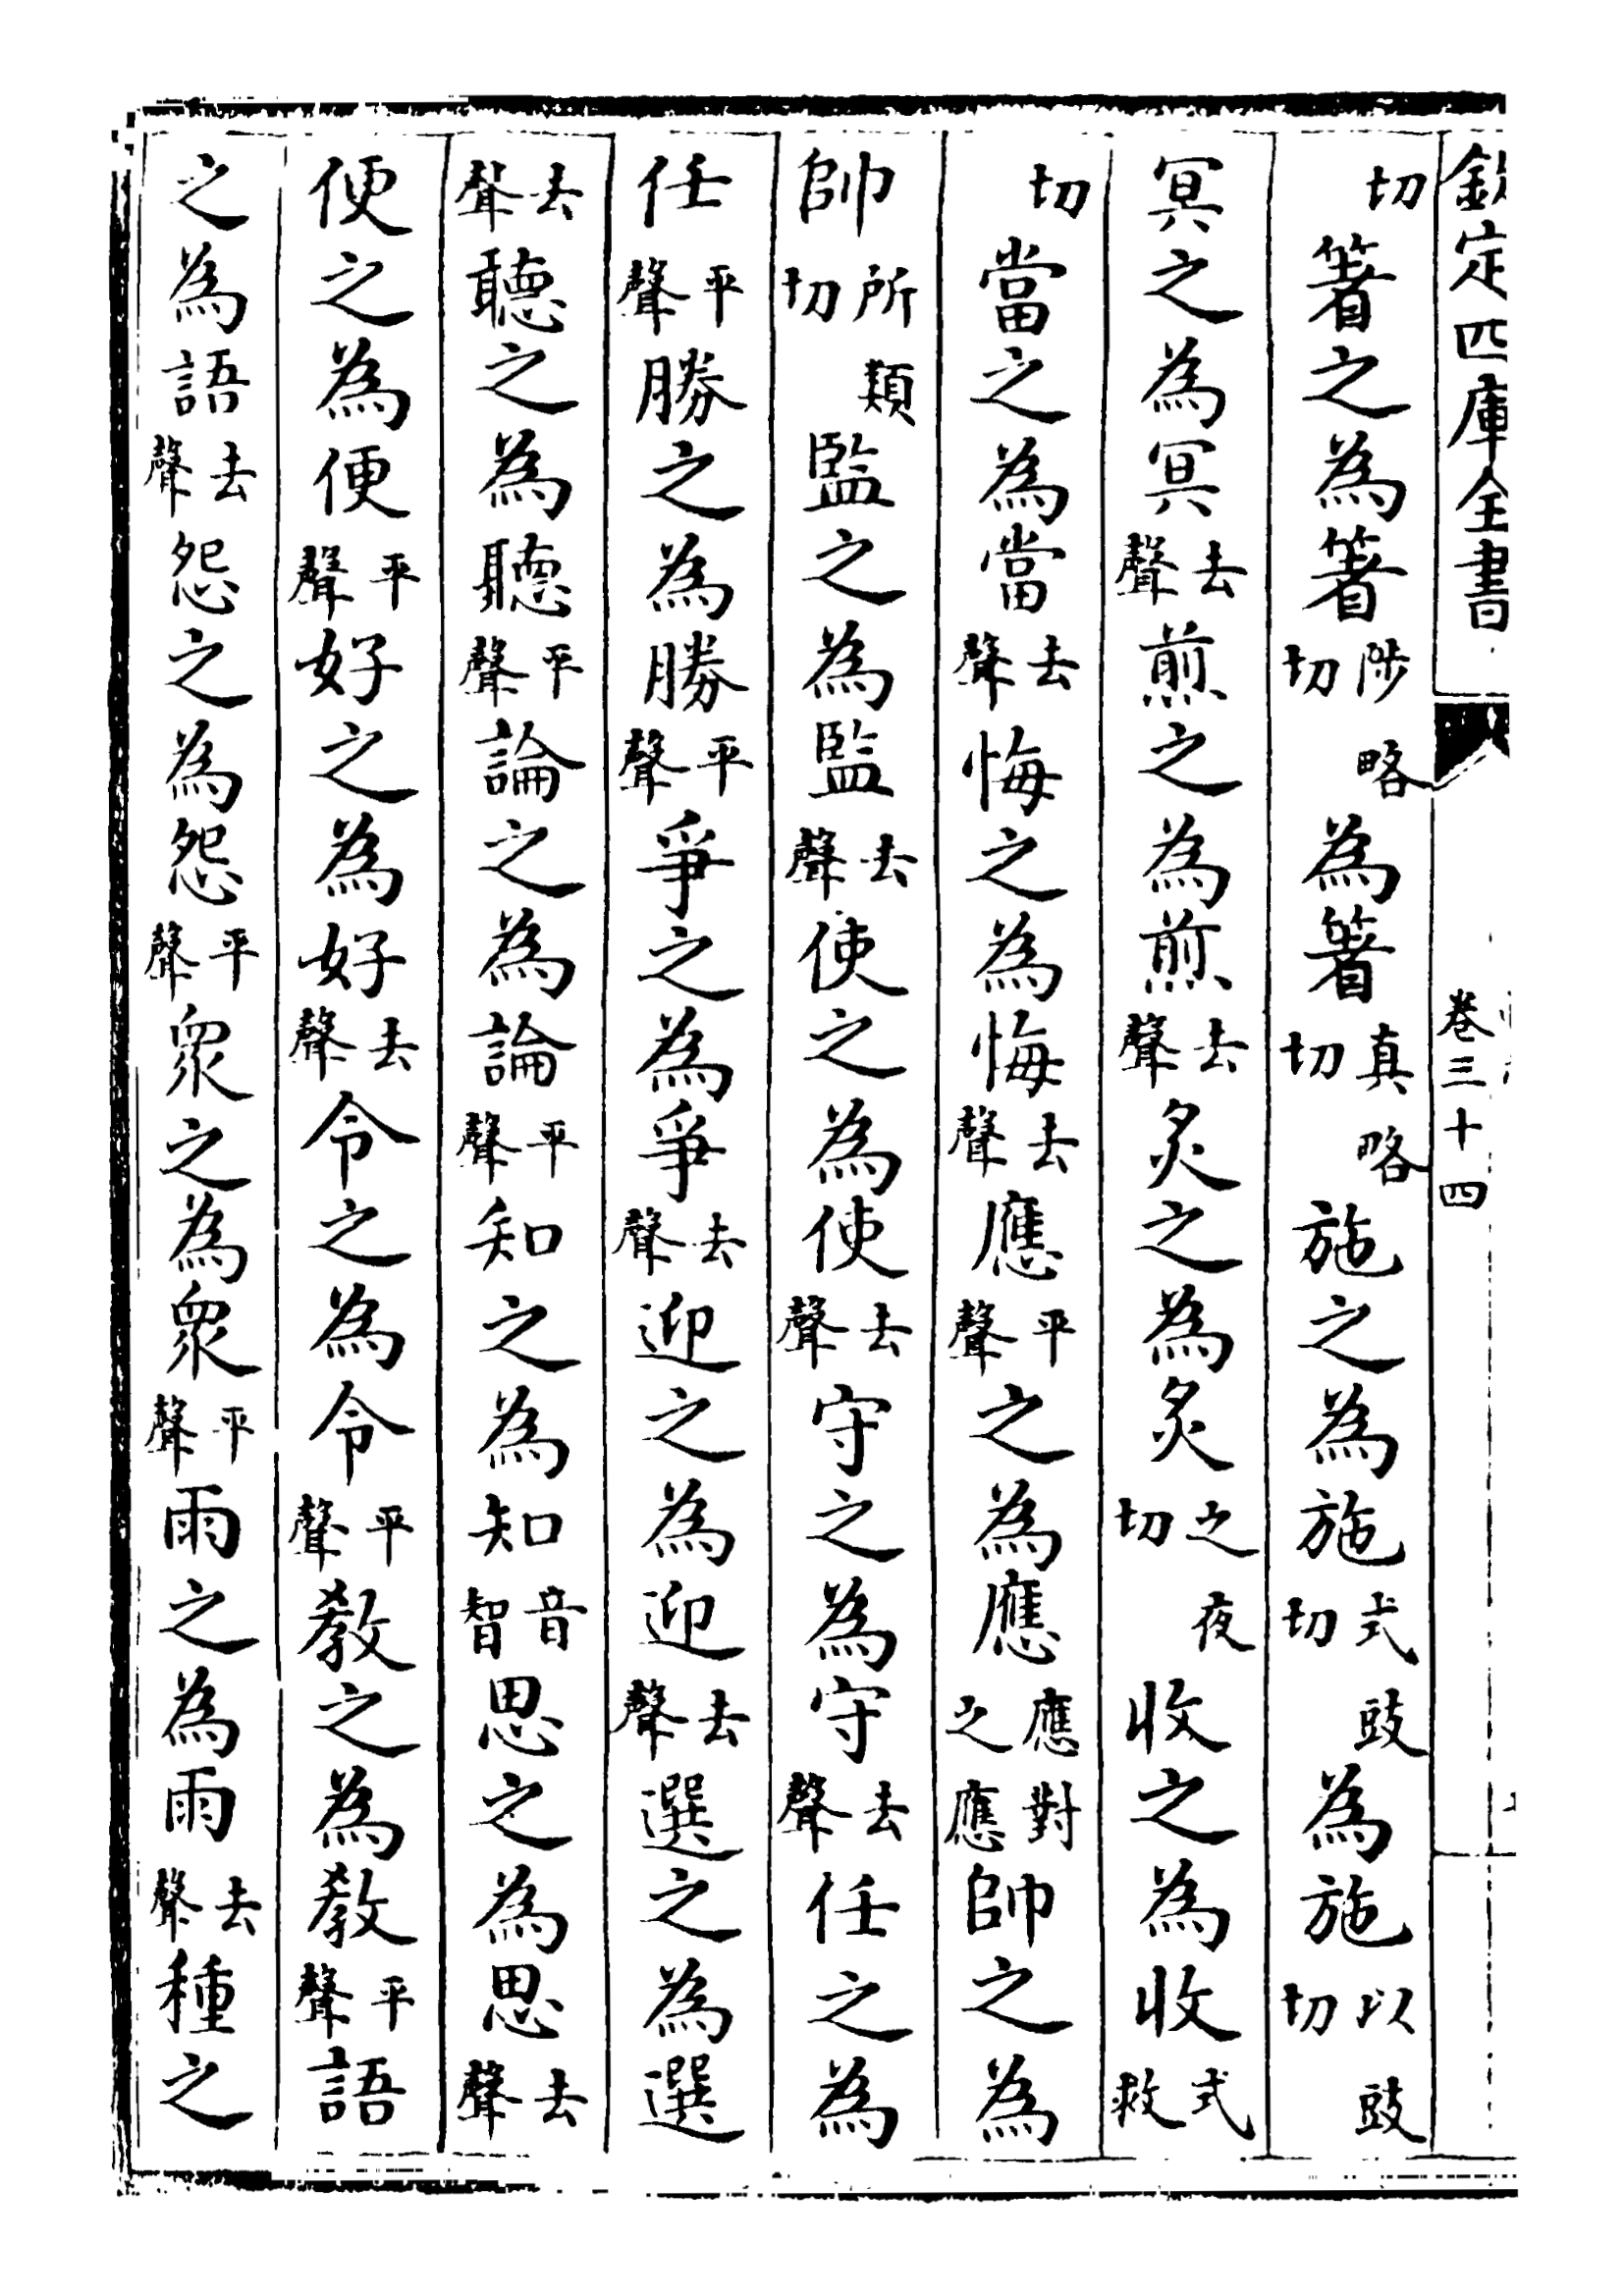 欽定四庫全書
卷三十四
切箸之為箸陟略切為箸真略切施之為施式豉切為施以豉切
冥之為冥去聲煎之為煎去聲炙之為炙之夜切收之為收式救
切當之為當去聲悔之為悔去聲應平聲之為應應對之應帥之為
帥所類切監之為監去聲使之為使去聲守之為守去聲任之為
任平聲勝之為勝平聲爭之為爭去聲迎之為迎去聲選之為選
去聲聽之為聽平聲論之為論平聲知之為知音智思之為思去聲
便之為便平聲好之為好去聲令之為令平聲教之為教平聲語
之為語去聲怨之為怨平聲衆之為衆平聲雨之為雨去聲種之